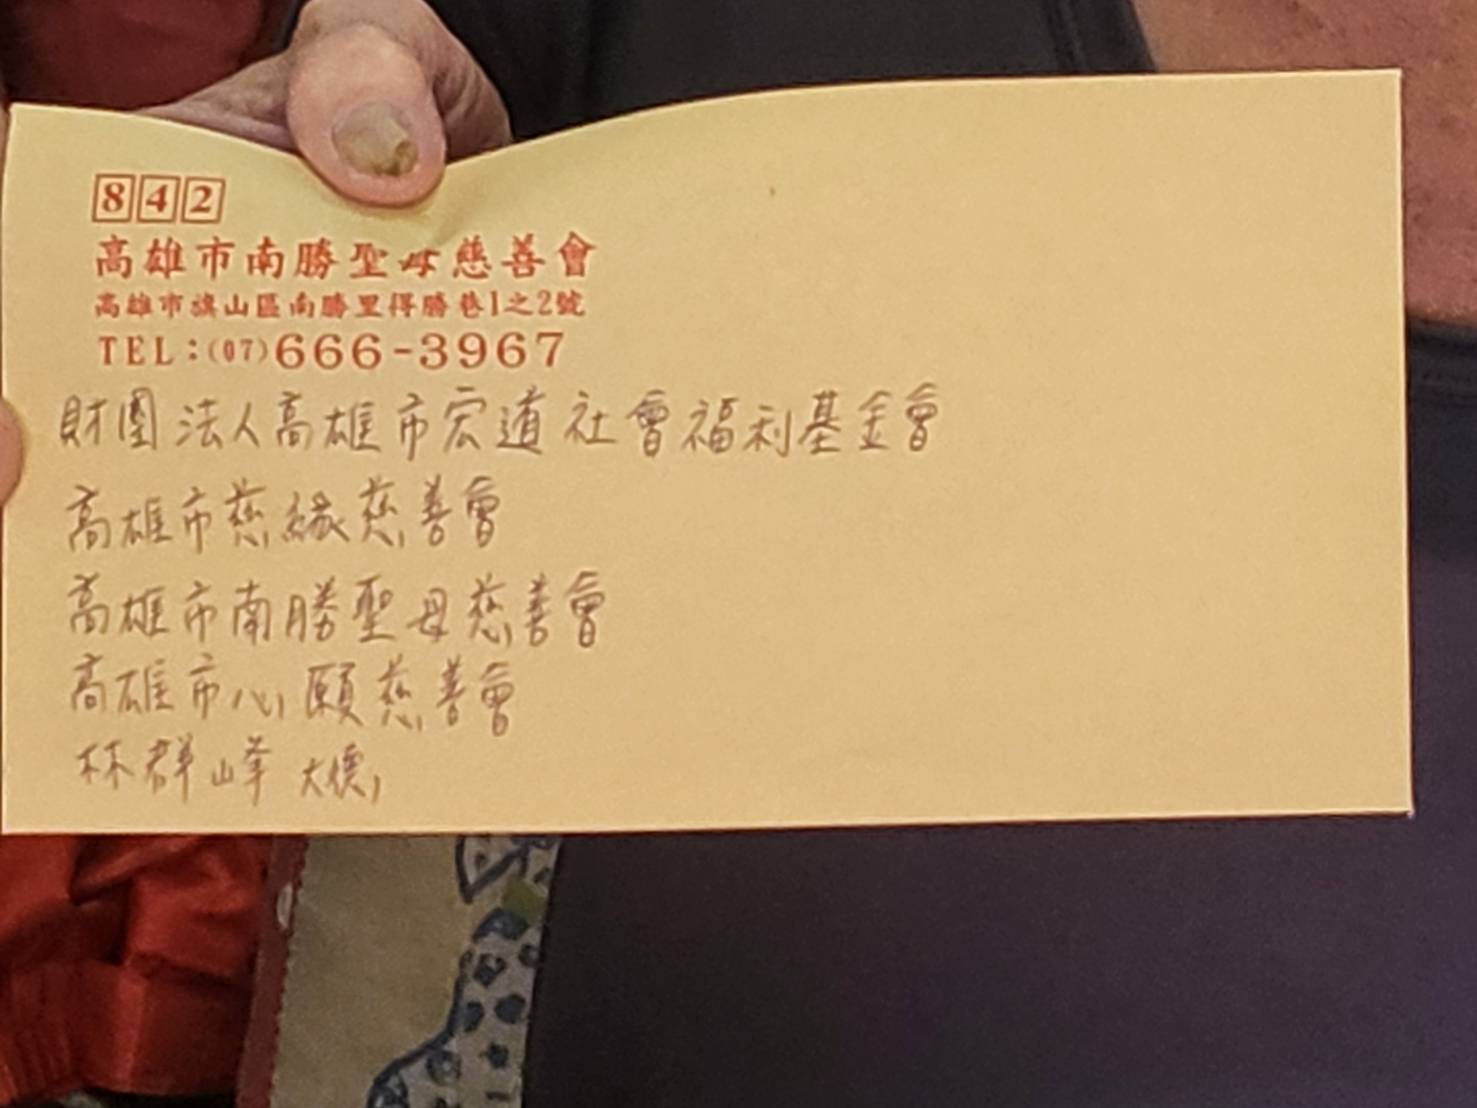 842
高雄市南勝聖母慈善會
高雄市旗山區南勝里得勝巷1之2號
TEL:(07)666-3967
財團法人高雄市宏道社會福利基金會
高雄市慈緣慈善會
高雄市南勝聖母慈善會
高雄市心願慈善會
林群峰 大德